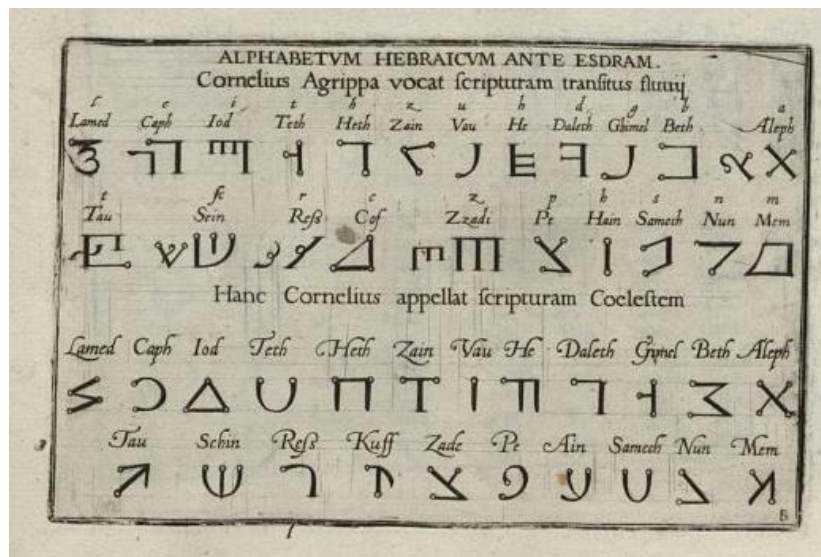 ALPHABETVM HEBRAICVM ANTE ESDRAM.
Cornelius Agrippa vocat ſcripturam tranſitus fluuij
l c i t h z u h d g b a
Lamed Caph Iod Teth Heth Zain Vau He Daleth Ghimel Beth Aleph
t ſc r c z p h s n m
Tau Sein Reſs Cof Zzadi Pe Hain Samech Nun Mem
Hanc Cornelius appellat ſcripturam Coeleſtem
Lamed Caph Iod Teth Heth Zain Vau He Daleth Gimel Beth Aleph
Tau Schin Reſs Kuff Zade Pe Ain Samech Nun Mem